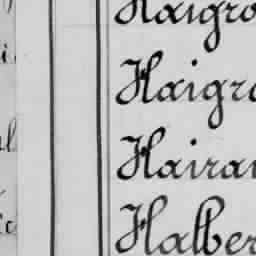 Haigro
Haigro
Hairan
Halber